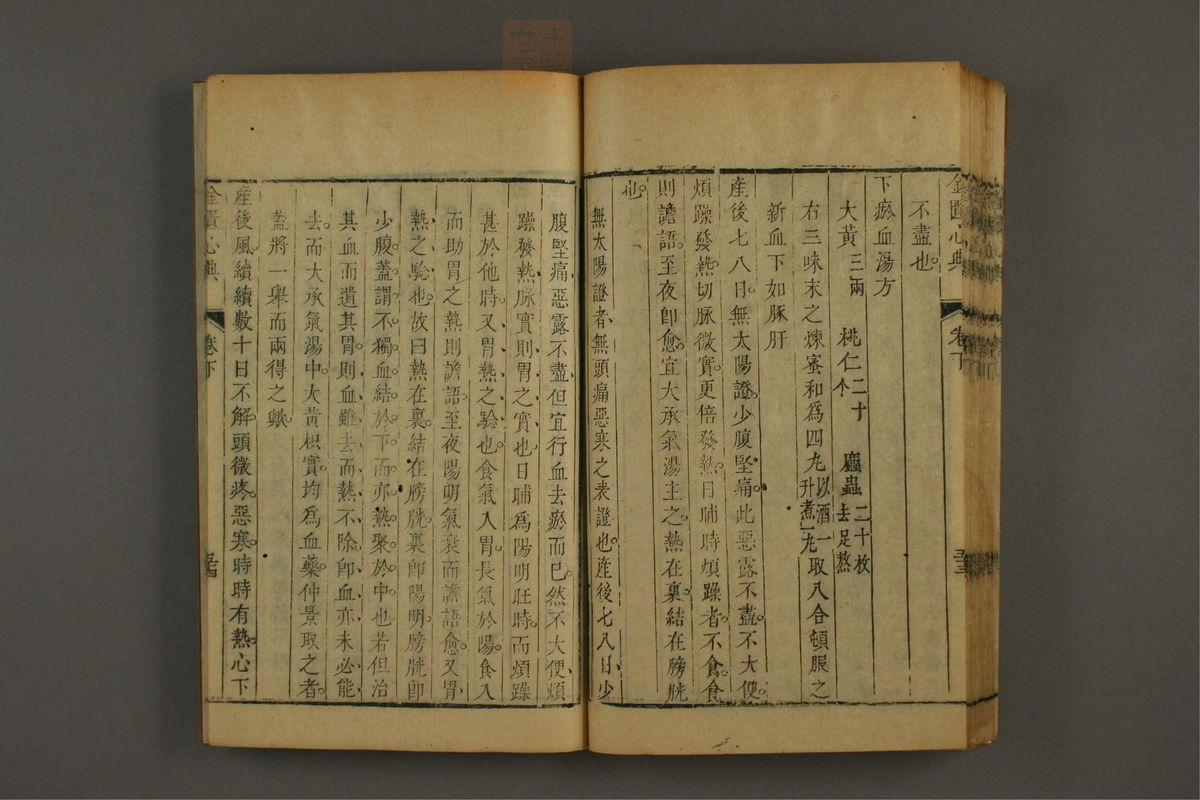 金匱心典　卷下　五三
不盡也
下瘀血湯方
大黃三兩　桃仁二十个　䗪蟲二十枚去足熬
右三味末之煉蜜和爲四丸以酒一升煮一丸取八合頓服之
新血下如豚肝
產後七八日無太陽證少腹堅痛此惡露不盡不大便
煩躁發熱切脉微實更倍發熱日晡時煩躁者不食食
則譫語至夜卽愈宜大承氣湯主之熱在裏結在膀胱
也
無太陽證者無頭痛惡寒之表證也產後七八日少
腹堅痛惡露不盡但宜行血去瘀而已然不大便煩
躁發熱脉實則胃之實也日晡爲陽明旺時而煩躁
甚於他時又胃熱之驗也食氣入胃長氣於陽食入
而助胃之熱則譫語至夜陽明氣衰而譫語愈又胃
熱之驗也故曰熱在裏結在膀胱裏卽陽明膀胱卽
少腹蓋謂不獨血結於下而亦熱聚於中也若但治
其血而遺其胃則血雖去而熱不除卽血亦未必能
去而大承氣湯中大黃枳實均爲血藥仲景取之者
蓋將一舉而兩得之歟
產後風續續數十日不解頭微疼惡寒時時有熱心下
金匱心典　卷下　五四